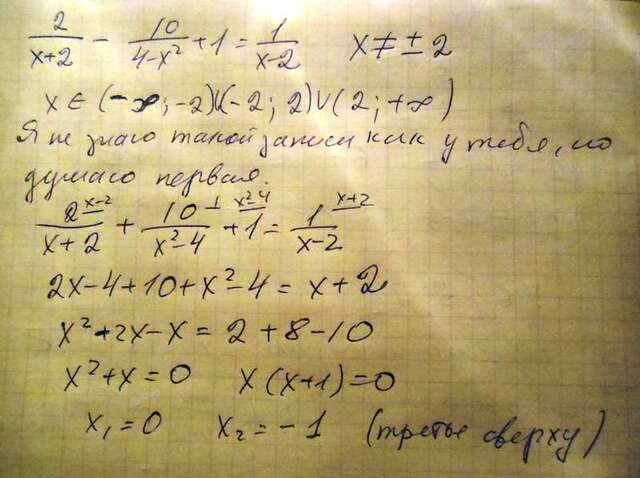 2/(x+2) - 10/(4-x²) + 1 = 1/(x-2) x ≠ ± 2
x ∈ (-∞; -2)∪(-2; 2)∪(2; +∞)
Я не знаю такой записи как у тебя, но
думаю первая.
2^{x-2}/(x+2) + 10^{1}/(x²-4) + 1^{x²-4} = 1^{x+2}/(x-2)
2x-4+10+x²-4 = x+2
x²+2x-x = 2+8-10
x²+x=0 x(x+1)=0
x₁=0 x₂=-1 (третье сверху)